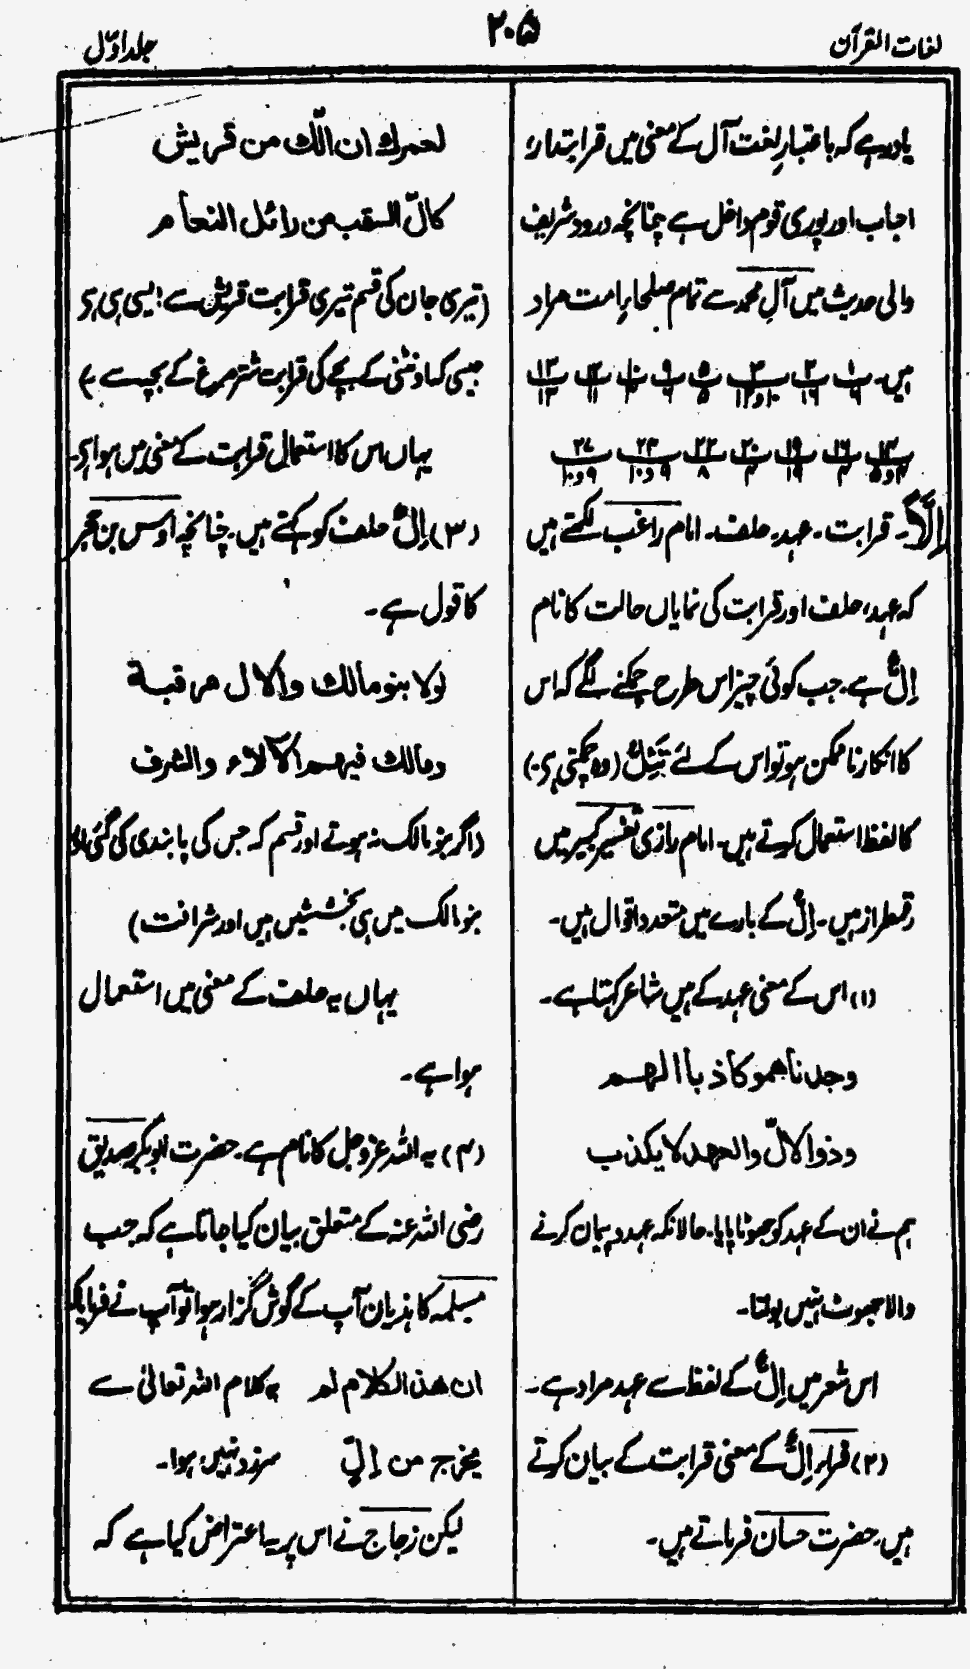 لغات القرآن
۲۰۵
جلد اوّل
یاد رہے کہ باعتبارِ لغت آل کے معنی میں قرابتدار،
احباب اور پوری قوم داخل ہے چنانچہ درود شریف
والی حدیث میں آلِ محمد سے تمام صلحاءِ امت مراد
ہیں۔
اِلًّا۔ قرابت۔ عہد۔ حلف۔ امام راغب لکھتے ہیں
کہ عہد، حلف اور قرابت کی نمایاں حالت کا نام
اِلٌّ ہے۔ جب کوئی چیز اس طرح چمکنے لگے کہ اس
کا انکار ناممکن ہو تو اس کے لئے تَئِلُّ (وہ چمکتی ہے۔)
کا لفظ استعمال کرتے ہیں۔ امام رازی تفسیر کبیر میں
رقمطراز ہیں۔ اِلٌّ کے بارے میں متعدد اقوال ہیں۔
(۱) اس کے معنی عہد کے ہیں شاعر کہتا ہے۔
وجدناھمو کاذبا الھم
وذوالالّ والعھد لا یکذب
ہم نے ان کے عہد کو جھوٹا پایا۔ حالانکہ عہد و پیمان کرنے
والا جھوٹ نہیں بولتا۔
اس شعر میں اِلٌّ کے لفظ سے عہد مراد ہے۔
(۲) فراء اِلٌّ کے معنی قرابت کے بیان کرتے
ہیں۔ حضرت حسان فرماتے ہیں۔
لعمرك ان الّك من قریش
كالّ السقب من رائل النعام
(تیری جان کی قسم تیری قرابت قریش سے ایسی ہی ہے
جیسی کہ اونٹنی کے بچے کی قرابت شتر مرغ کے بچہ سے۔)
یہاں اس کا استعمال قرابت کے معنی میں ہوا ہے۔
(۳) اِلٌّ حلف کو کہتے ہیں۔ چنانچہ اوس بن حجر
کا قول ہے۔
لولا بنو مالك والال مرقبة
ومالك فیھم الآلاء والشرف
(اگر بنو مالک نہ ہوتے اور قسم کہ جس کی پابندی کی گئی اور
بنو مالک میں ہی بخششیں ہیں اور شرافت)
یہاں یہ حلف کے معنی میں استعمال
ہوا ہے۔
(۴) یہ اللہ عزوجل کا نام ہے۔ حضرت ابوبکر صدیق
رضی اللہ عنہ کے متعلق بیان کیا جاتا ہے کہ جب
مسیلمہ کا ہذیان آپ کے گوش گزار ہوا تو آپ نے فرمایا کہ
ان ھذا الکلام لم یہ کلام اللہ تعالیٰ سے
یخرج من اِلٍّ سرزد نہیں ہوا۔
لیکن زجاج نے اس پر یہ اعتراض کیا ہے کہ